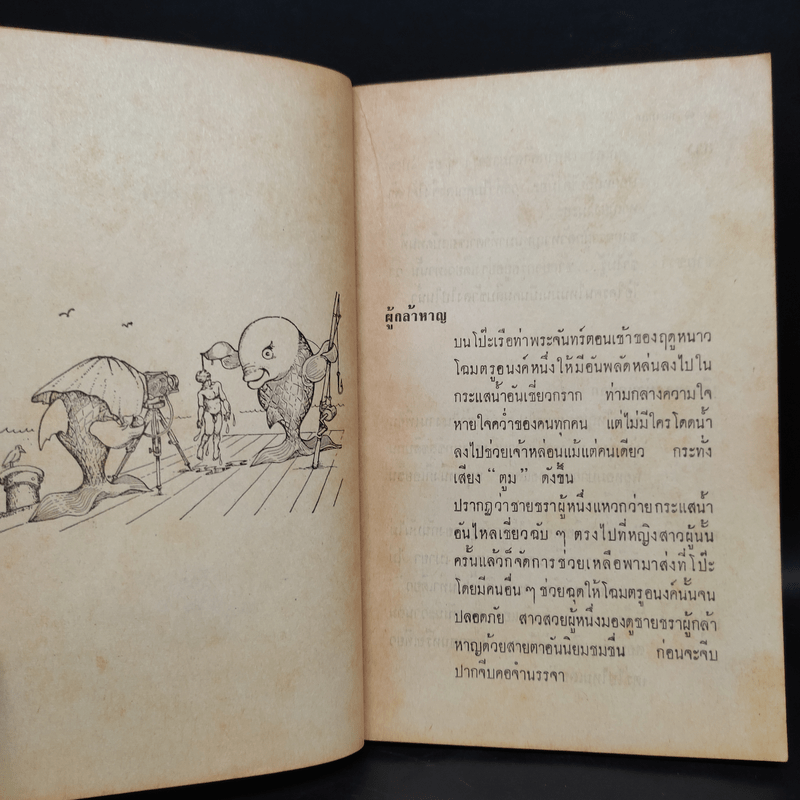 ผู้กล้าหาญ
บนโป๊ะเรือท่าพระจันทร์ตอนเช้าของฤดูหนาว
โฉมตรูอนงค์หนึ่งให้มีอันพลัดหล่นลงไปใน
กระแสน้ำอันเชี่ยวกราก ท่ามกลางความใจ
หายใจคว่ำของคนทุกคน แต่ไม่มีใครโดดน้ำ
ลงไปช่วยเจ้าหล่อนแม้แต่คนเดียว กระทั่ง
เสียง “ตูม” ดังขึ้น
ปรากฏว่าชายชราผู้หนึ่งแหวกว่ายกระแสน้ำ
อันไหลเชี่ยวฉับ ๆ ตรงไปที่หญิงสาวผู้นั้น
ครั้นแล้วก็จัดการช่วยเหลือพามาส่งที่โป๊ะ
โดยมีคนอื่น ๆ ช่วยฉุดให้โฉมตรูอนงค์นั้นจน
ปลอดภัย สาวสวยผู้หนึ่งมองดูชายชราผู้กล้า
หาญด้วยสายตาอันนิยมชมชื่น ก่อนจะจีบ
ปากจีบคอจำนรรจา